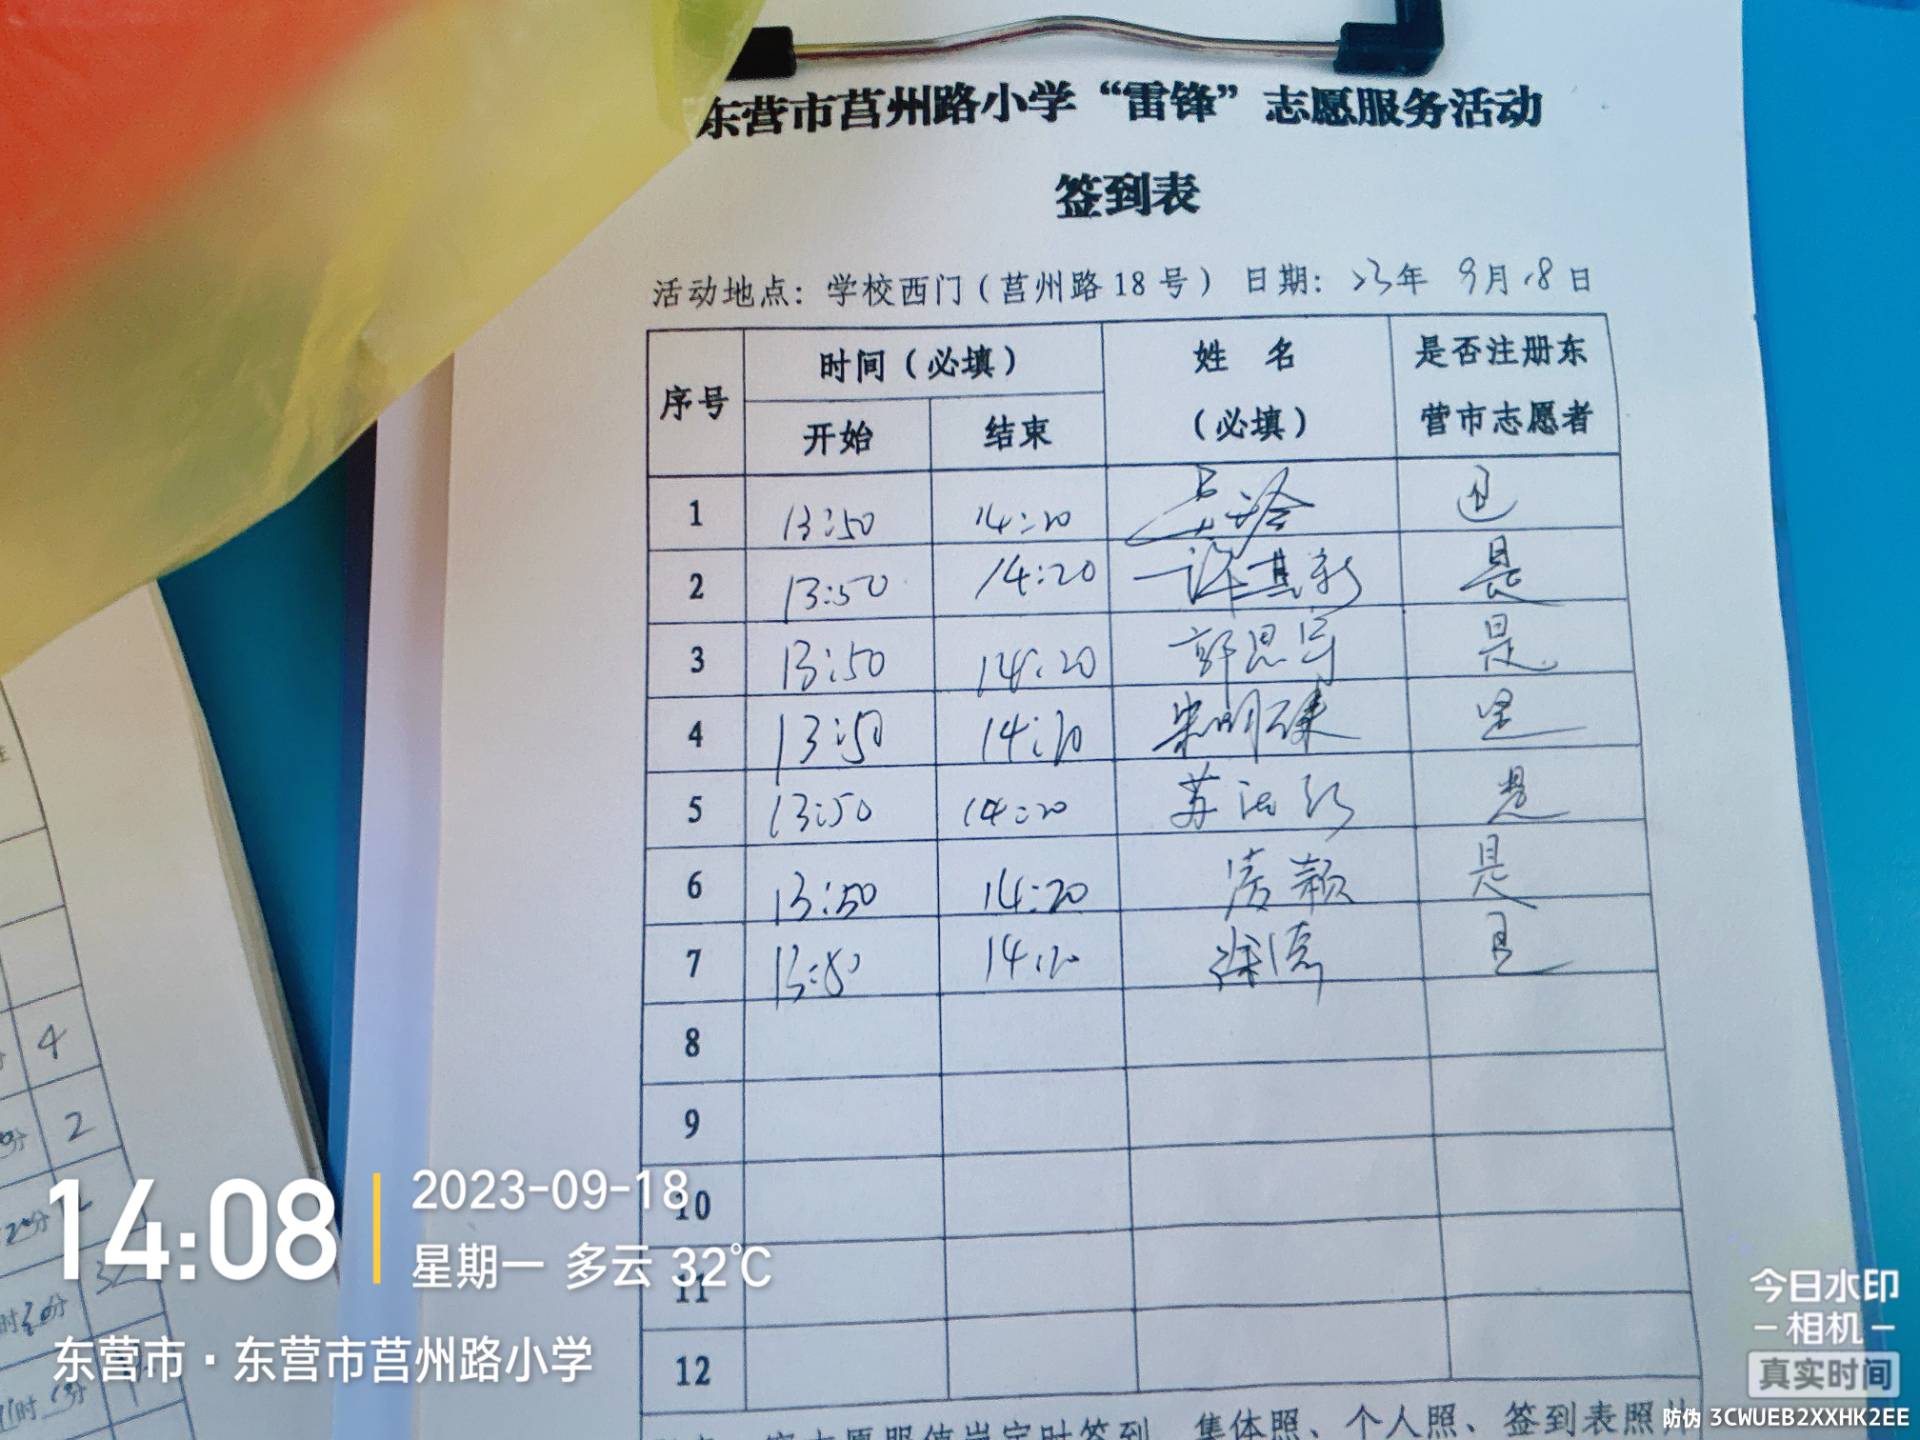 东营市莒州路小学“雷锋”志愿服务活动
签到表
活动地点：学校西门（莒州路18号） 日期：23年 9月18日
序号 时间（必填） 姓 名（必填） 是否注册东营市志愿者
开始 结束
1 13:50 14:20 是
2 13:50 14:20 许其新 是
3 13:50 14:20 郭思宇 是
4 13:50 14:20 宋明 是
5 13:50 14:20 苏 是
6 13:50 14:20 颖 是
7 13:50 14:20 徐倩 是
8
9
10
11
12
集体照、个人照、签到表照片
4
2
14:08
2023-09-18
星期一 多云 32℃
东营市·东营市莒州路小学
今日水印
相机
真实时间
防伪 3CWUEB2XXHK2EE